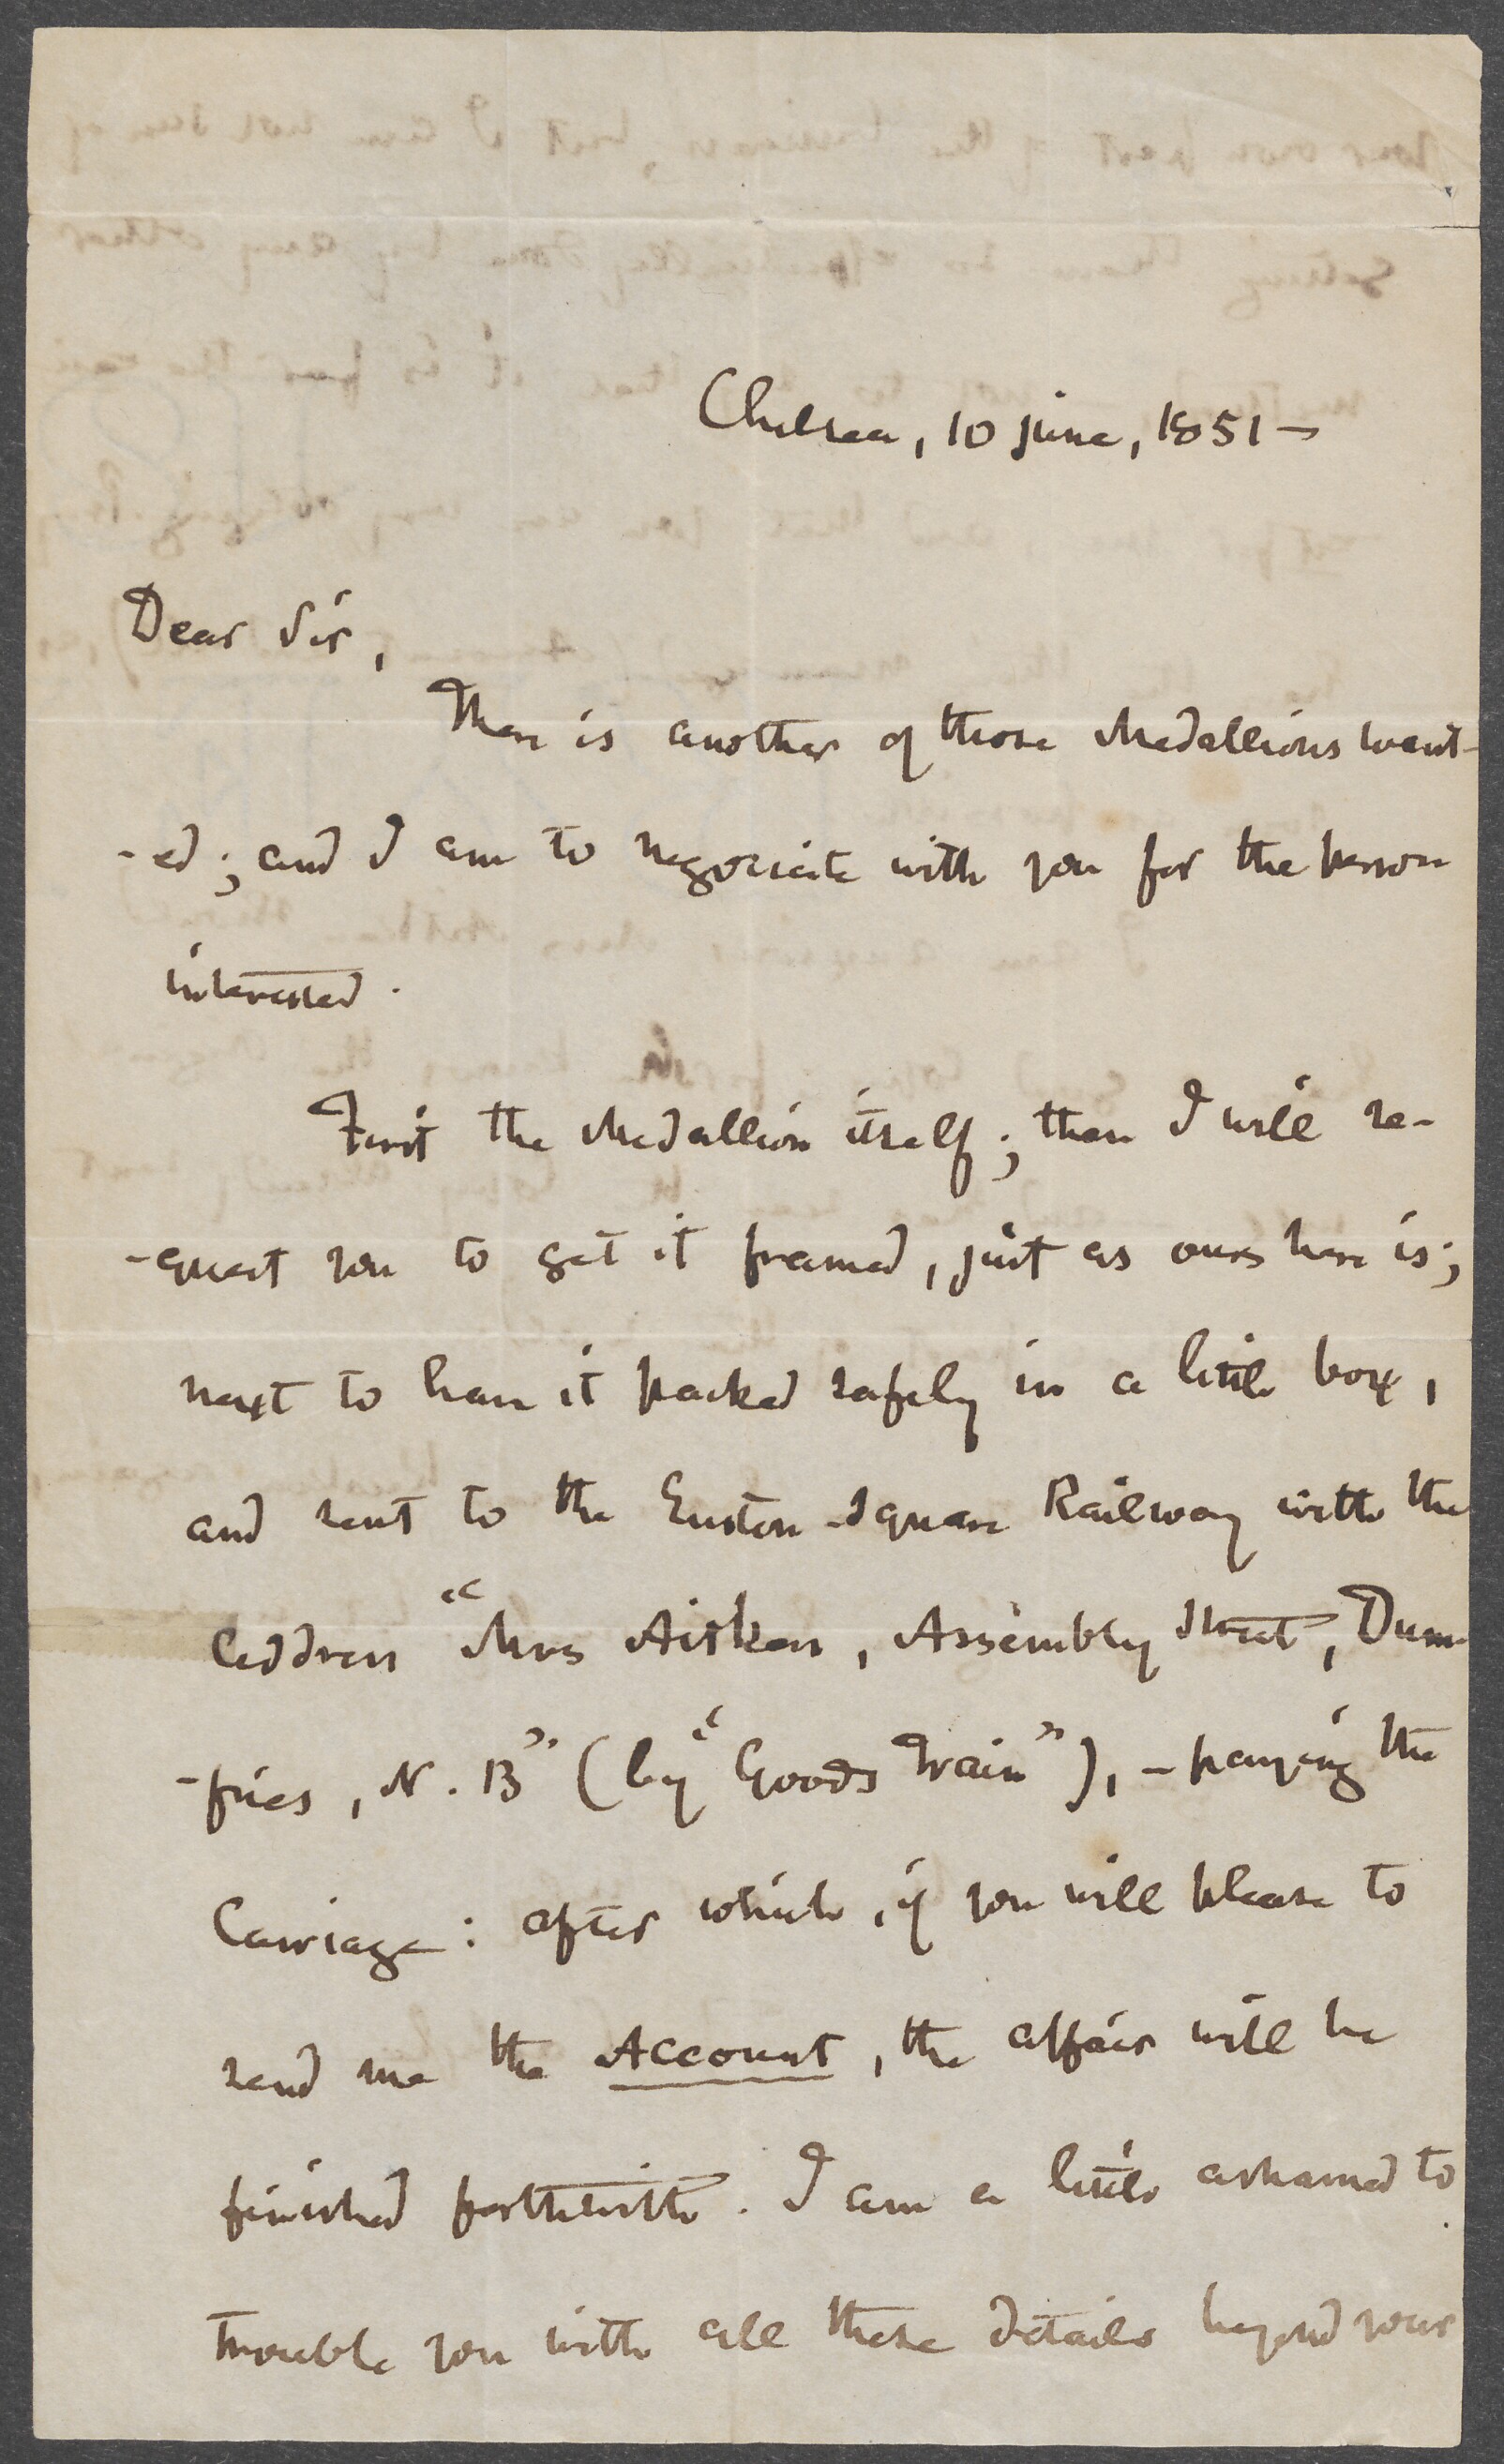 Chelsea, 10 june, 1851 –
Dear Sir,
There is another of those Medallions want-
-ed; and I am to negociate with you for the person
interested.
First the Medallion itself; then I will re-
-quest you to get it framed, just as ours here is;
next to have it packed safely in a little box,
and sent to the Euston-Square Railway with the
address "Mrs Aitken, Assembly Street, Dum-
-fries, N. B" (by "Goods Train"), – paying the
Carriage: after which, if you will please to
send me the Account, the affair will be
finished forthwith. I am a little ashamed to
trouble you with all these details beyond your